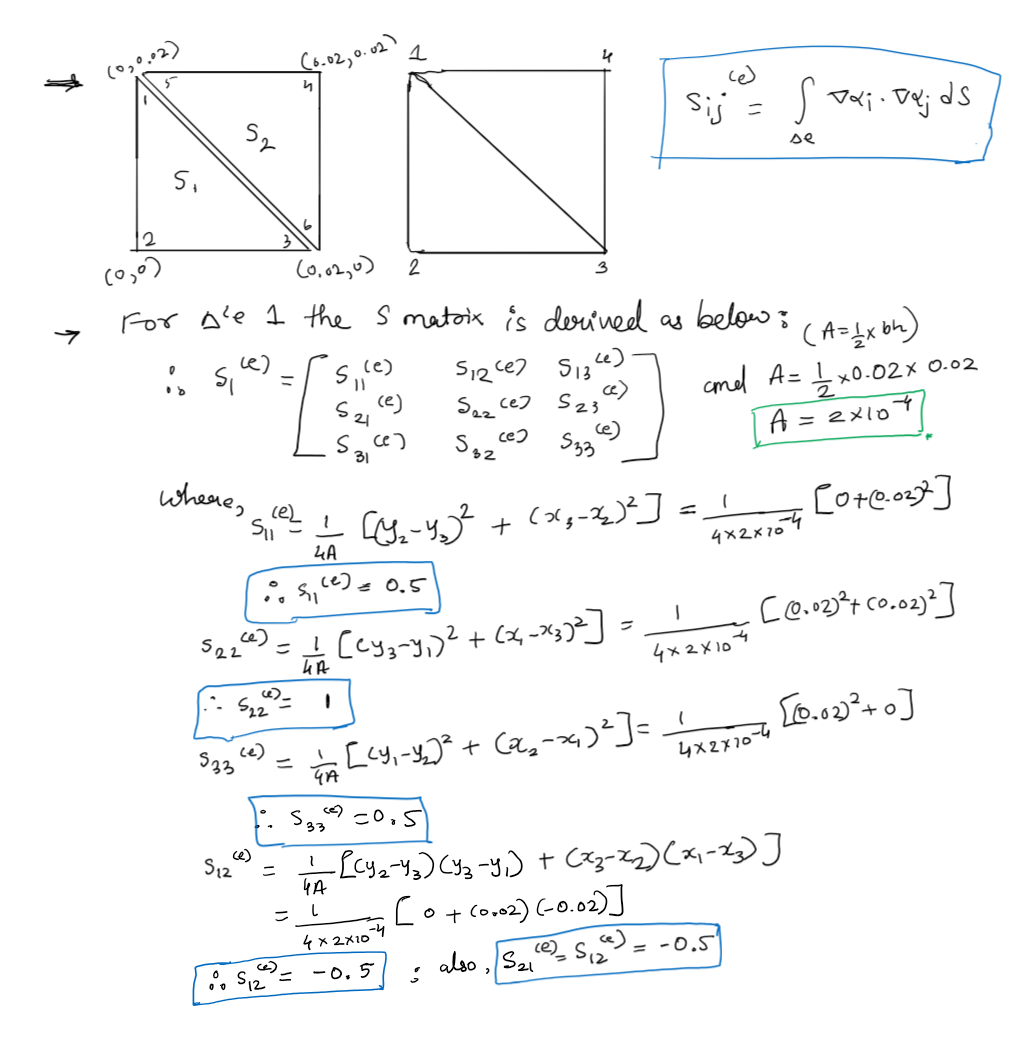 ⇒ (0,0.02) (0.02,0.02) 1 4
5 4
1
S₂
S₁
6
2 3
(0,0) (0.02,0) 2 3
Sᵢⱼ⁽ᵉ⁾ = ∫ ∇αᵢ · ∇αⱼ dS
Δe
→ For Δ'le 1 the S matrix is derived as below: (A=1/2 x bh)
∴ S₁⁽ᵉ⁾ = [ S₁₁⁽ᵉ⁾ S₁₂⁽ᵉ⁾ S₁₃⁽ᵉ⁾
S₂₁⁽ᵉ⁾ S₂₂⁽ᵉ⁾ S₂₃⁽ᵉ⁾
S₃₁⁽ᵉ⁾ S₃₂⁽ᵉ⁾ S₃₃⁽ᵉ⁾ ]
and A = 1/2 x 0.02 x 0.02
A = 2x10⁻⁴
where,
S₁₁⁽ᵉ⁾ = 1/4A [(y₂-y₃)² + (x₃-x₂)²] = 1/(4x2x10⁻⁴) [0+(0.02)²]
∴ S₁₁⁽ᵉ⁾ = 0.5
S₂₂⁽ᵉ⁾ = 1/4A [(y₃-y₁)² + (x₁-x₃)²] = 1/(4x2x10⁻⁴) [(0.02)²+(0.02)²]
∴ S₂₂⁽ᵉ⁾ = 1
S₃₃⁽ᵉ⁾ = 1/4A [(y₁-y₂)² + (x₂-x₁)²] = 1/(4x2x10⁻⁴) [(0.02)²+0]
∴ S₃₃⁽ᵉ⁾ = 0.5
S₁₂⁽ᵉ⁾ = 1/4A [(y₂-y₃)(y₃-y₁) + (x₃-x₂)(x₁-x₃)]
= 1/(4x2x10⁻⁴) [0 + (0.02)(-0.02)]
∴ S₁₂⁽ᵉ⁾ = -0.5 ; also, S₂₁⁽ᵉ⁾ = S₁₂⁽ᵉ⁾ = -0.5